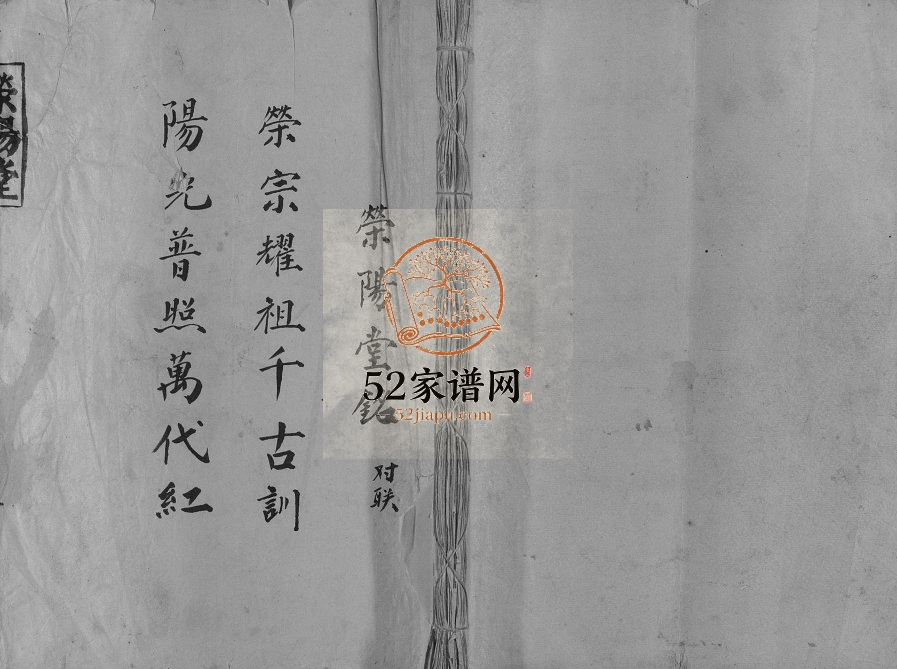 榮陽堂銘 对联
榮宗耀祖千古訓
陽光普照萬代紅
榮陽堂
52家谱网
52jiapu.com